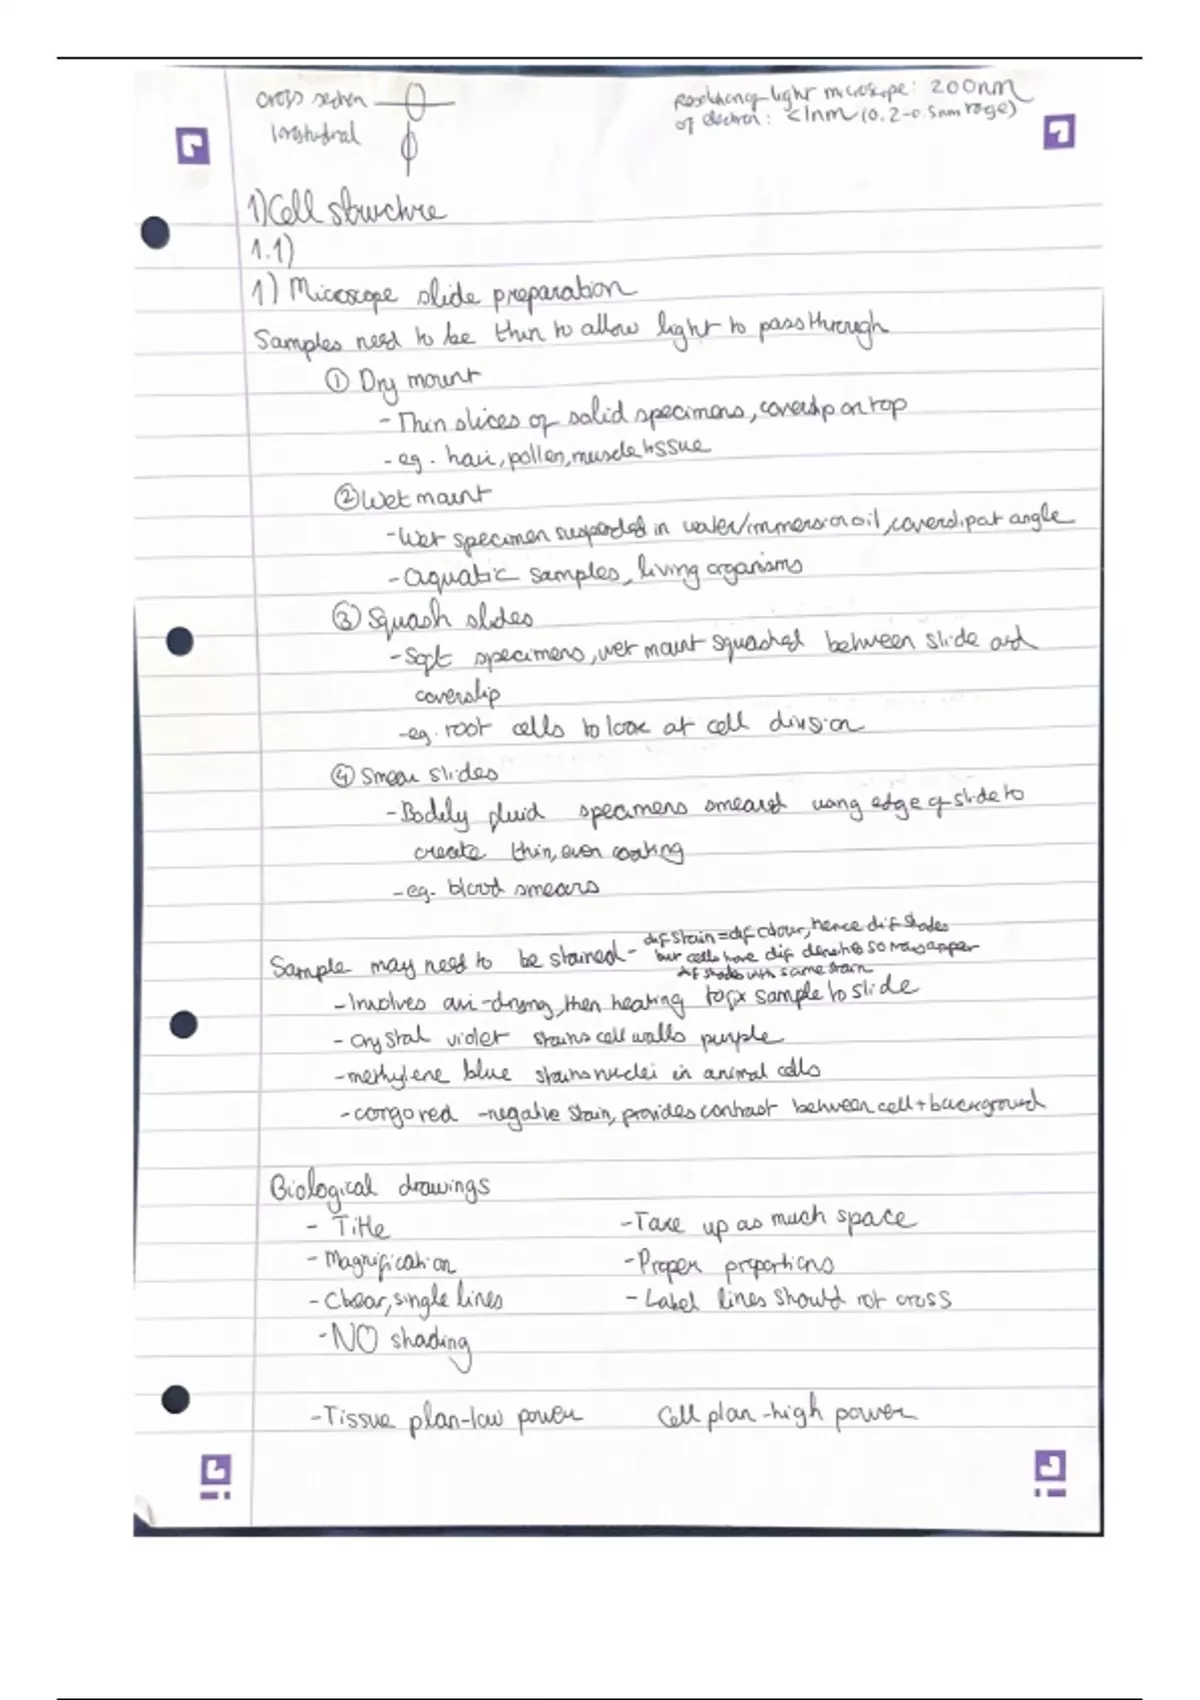 cross section
longitudinal
Resolution of light microscope: 200nm
of electron: <1nm (0.2-0.5nm range)
1) Cell structure
1.1)
1) Microscope slide preparation
Samples need to be thin to allow light to pass through
① Dry mount
- Thin slices of solid specimens, coverslip on top
- eg. hair, pollen, muscle tissue
② Wet mount
- Wet specimen suspended in water/immersion oil, coverslip at angle
- aquatic samples, living organisms
③ Squash slides
- Soft specimens, wet mount squashed between slide and
coverslip
- eg. root cells to look at cell division
④ Smear slides
- Bodily fluid specimens smeared using edge of slide to
create thin, even coating
- eg. blood smears
Sample may need to be stained - dif stain = dif colour, hence dif shades
but cells have dif densities so may appear
dif shades with same stain
- Involves air-drying, then heating to fix sample to slide
- crystal violet stains cell walls purple
- methylene blue stains nuclei in animal cells
- congo red - negative stain, provides contrast between cell + background
Biological drawings
- Title
- Take up as much space
- Magnification
- Proper proportions
- Clear, single lines
- Label lines should not cross
- NO shading
- Tissue plan - low power
Cell plan - high power